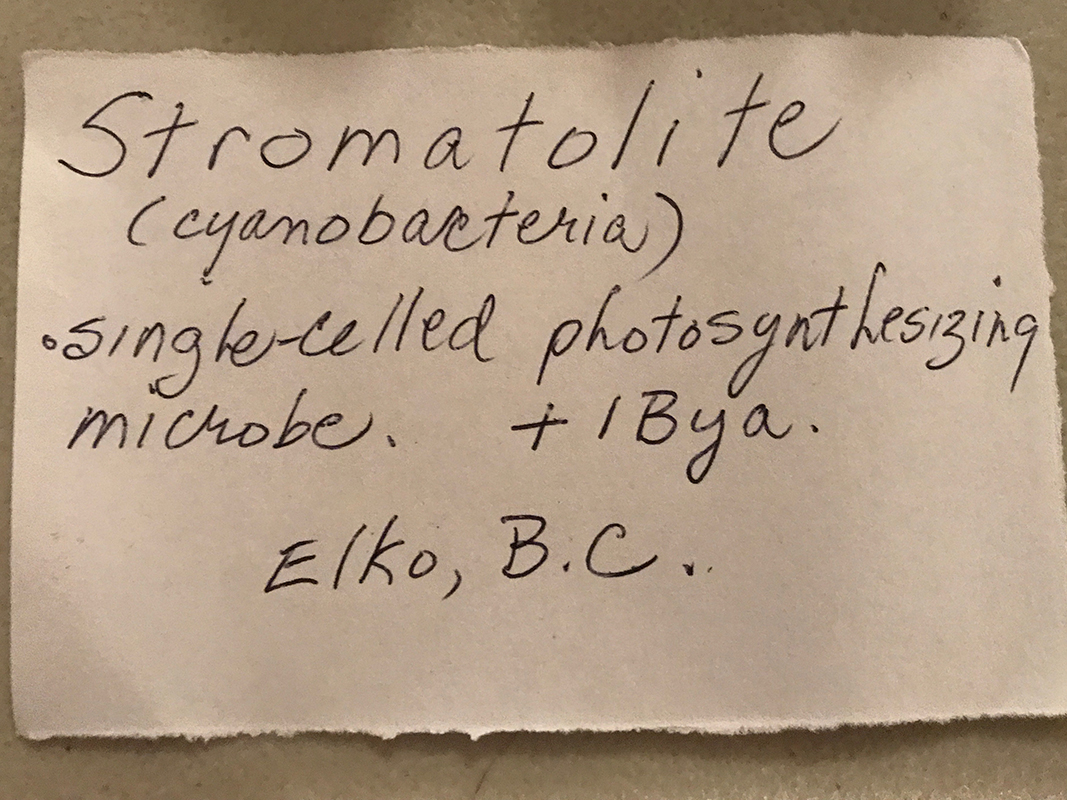 Stromatolite
(cyanobacteria)
•single-celled photosynthesizing
microbe. +1Bya.
Elko, B.C.